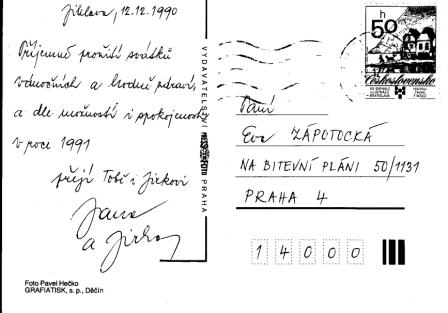 Jihlava, 12.12.1990
Příjemné prožití svátků
vánočních a hodně zdraví,
a dle možností i spokojenosti
v roce 1991
přejí Tobě i Jirkovi
Jana
a Jirka
Foto Pavel Hečko
GRAFIATISK, s. p., Děčín
VYDAVATELSTVÍ
PRAHA
50 h
Československo
Paní
Eva ZÁPOTOCKÁ
NA BITEVNÍ PLÁNI 50/1131
PRAHA 4
14000